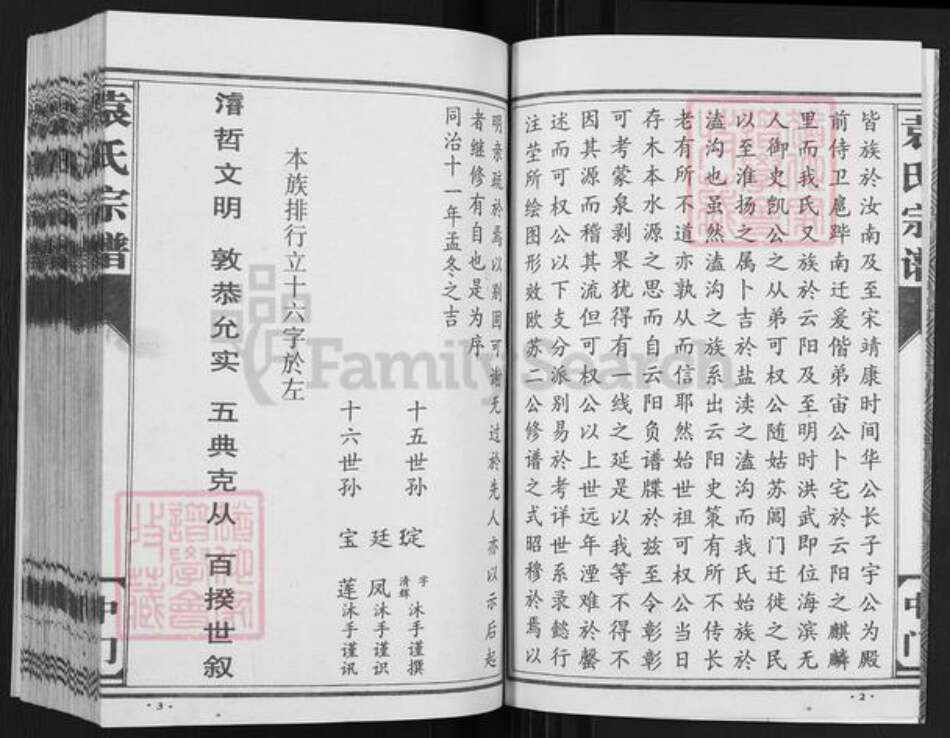 皆族於汝南及至宋靖康时间华公长子宇公为殿
前侍卫扈跸南迁爰偕弟宙公卜宅於云阳之麒麟
里而我氏又族於云阳及至明时洪武即位海滨无
人御史凯公之从弟可权公随姑苏阊门迁徙之民
以至淮扬之属卜吉於盐渎之溘沟而我氏始族於
溘沟也虽然溘沟之族系出云阳史策有所不传长
老有所不道亦孰从而信耶然始世祖可权公当日
存木本水源之思而自云阳负谱牒於兹至今彰彰
可考蒙泉剥果犹得有一线之延是以我等不得不
因其源而稽其流但可权公以上世远年湮难於罄
述而可权公以下支分派别易於考详世系录懿行
注茔所绘图形效欧苏二公修谱之式昭穆於焉以
明亲疏於焉以别固可谢无过於先人亦以示后起
者继修有自也是为序
同治十一年孟冬之吉
十五世孙 廷
字清辉 沐手谨撰
凤沐手谨识
十六世孙 宝莲沐手谨讯
本族排行立十六字於左
濬哲文明 敦恭允实 五典克从 百揆世叙
袁氏宗谱
中门
·2·
袁氏宗谱
中门
·3·
FamilySearch